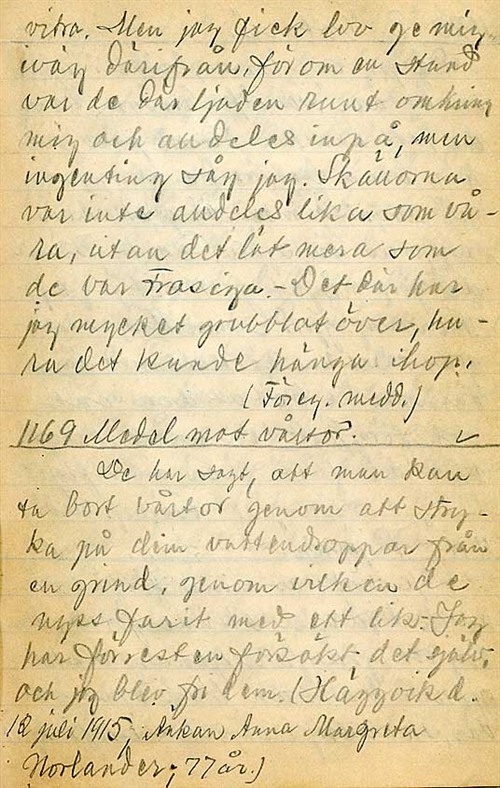 vitra. Men jag fick lov ge mig
iväg därifrån, för om en stund
var de där ljuden runt omkring
mig och andeles inpå, men
ingenting såg jag. Skällorna
var inte andeles lika som vå-
ra, utan det lät mera som
de var frasiga. - Det där har
jag mycket grubblat över, hu-
ru det kunde hänga ihop.
(Föreg. medd.)
1169 Medel mot vårtor. ✓
De har sagt, att man kan
ta bort vårtor genom att stry-
ka på dem vattendroppar från
en grind, genom vilken de
nyss farit med ett lik. Jag
har förresten försökt det själv,
och jag blev fri dem. (Häggvik d.
12 juli 1915, Ankan Anna Margreta
Norlander, 77 år.)